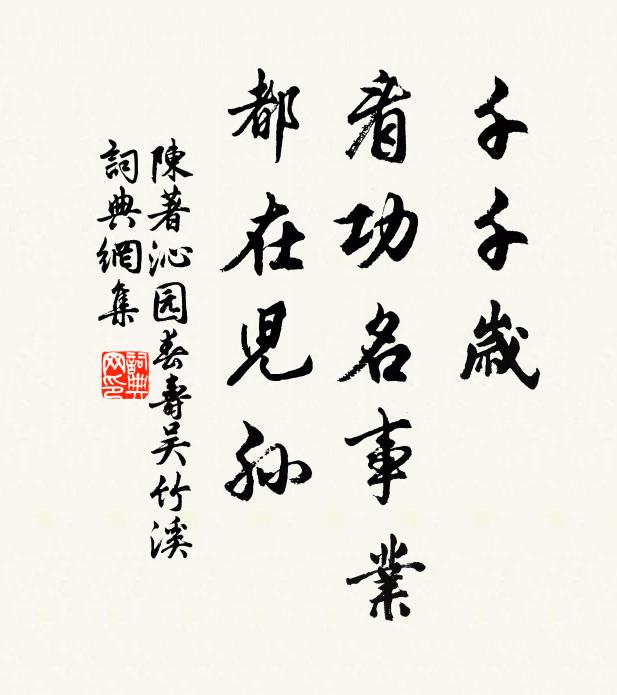 千千歲
看功名事業
都在兒孫
陳著沁园春壽吴竹溪
詞典網集
詞典网印